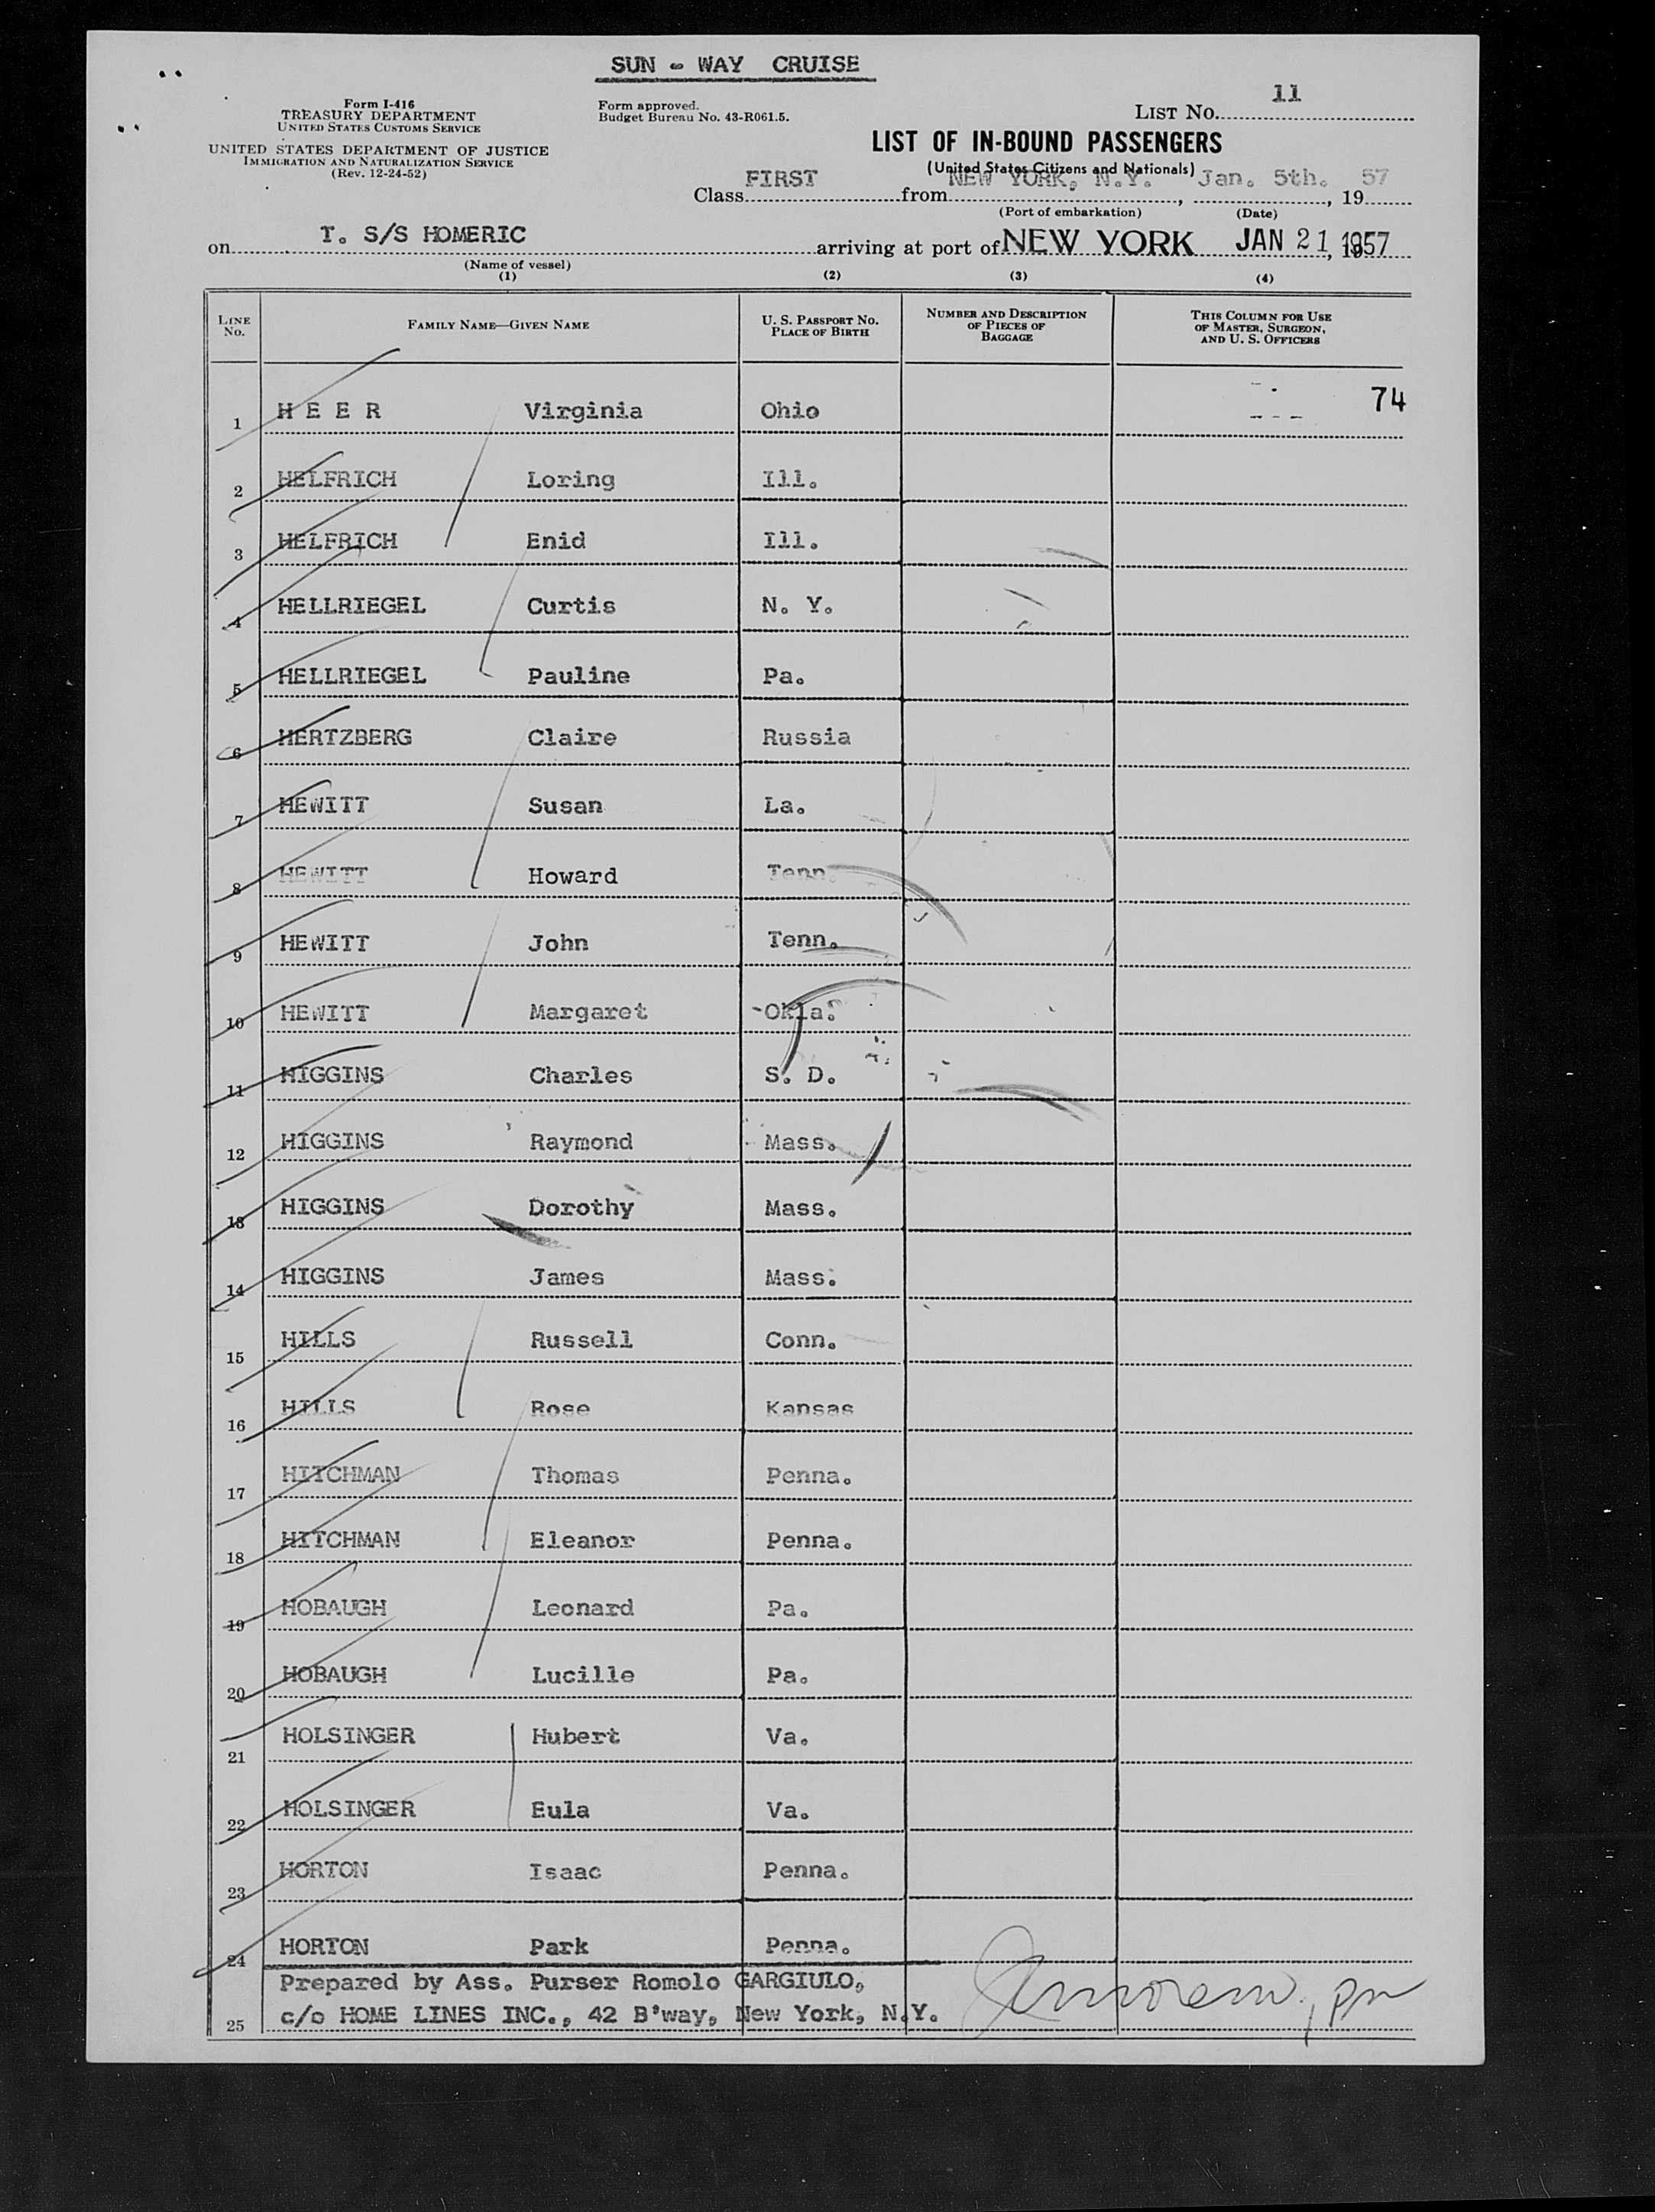 SUN - WAY CRUISE
Form I-416
TREASURY DEPARTMENT
UNITED STATES CUSTOMS SERVICE
UNITED STATES DEPARTMENT OF JUSTICE
IMMIGRATION AND NATURALIZATION SERVICE
(Rev. 12-24-52)
Form approved.
Budget Bureau No. 43-R061.5.
LIST No. 11
LIST OF IN-BOUND PASSENGERS
(United States Citizens and Nationals)
Class FIRST from NEW YORK, N.Y. , Jan. 5th. , 19 57
(Port of embarkation) (Date)
on T. S/S HOMERIC arriving at port of NEW YORK JAN 21 1957
(Name of vessel)
(1) (2) (3) (4)
LINE No. FAMILY NAME—GIVEN NAME U. S. PASSPORT No. PLACE OF BIRTH NUMBER AND DESCRIPTION OF PIECES OF BAGGAGE THIS COLUMN FOR USE OF MASTER, SURGEON, AND U. S. OFFICERS
1 H E E R Virginia Ohio 74
2 HELFRICH Loring Ill.
3 HELFRICH Enid Ill.
4 HELLRIEGEL Curtis N. Y.
5 HELLRIEGEL Pauline Pa.
6 HERTZBERG Claire Russia
7 HEWITT Susan La.
8 HEWITT Howard Tenn.
9 HEWITT John Tenn.
10 HEWITT Margaret Okla.
11 HIGGINS Charles S. D.
12 HIGGINS Raymond Mass.
13 HIGGINS Dorothy Mass.
14 HIGGINS James Mass.
15 HILLS Russell Conn.
16 HILLS Rose Kansas
17 HITCHMAN Thomas Penna.
18 HITCHMAN Eleanor Penna.
19 HOBAUGH Leonard Pa.
20 HOBAUGH Lucille Pa.
21 HOLSINGER Hubert Va.
22 HOLSINGER Eula Va.
23 HORTON Isaac Penna.
24 HORTON Park Penna.
Prepared by Ass. Purser Romolo GARGIULO,
25 c/o HOME LINES INC., 42 B'way, New York, N.Y.